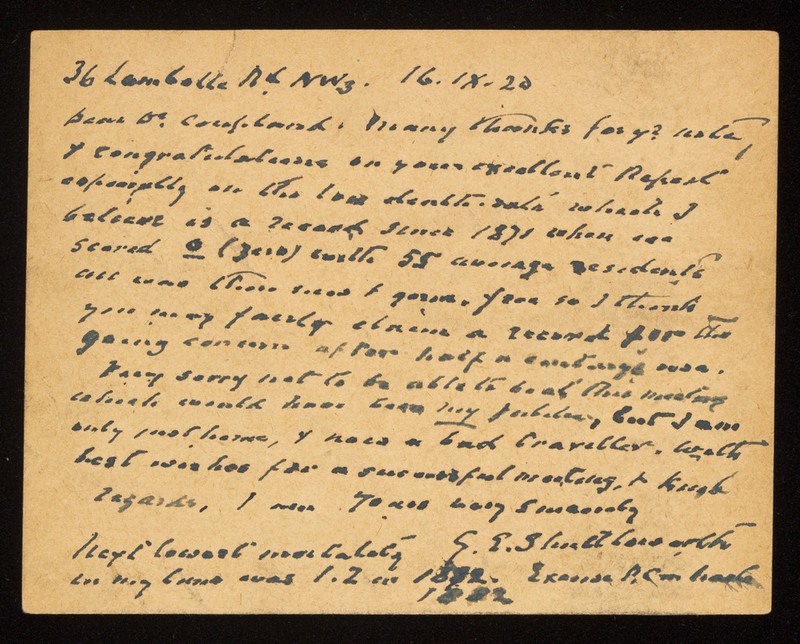 36 Lambolle Rd NW3. 16.IX.20
Dear Dr. Coupland. Many thanks for yr note,
& congratulations on your excellent Report
especially on the low death-rate which I
believe is a record since 1871 when we
scored 0 (zero) with 55 average residents
all was then new & germ-free so I think
you may fairly claim a record for the
going concern after half a century's use.
Very sorry not to be able to be at this meeting
which would have been my jubilee, but I am
only just home, & now a bad traveller. With
best wishes for a successful meeting, & kind
regards, I am Yours very sincerely
G. E. Shuttleworth
Next lowest mortality
in my time was 1.2 in 1882. Excuse P. Card haste
1882